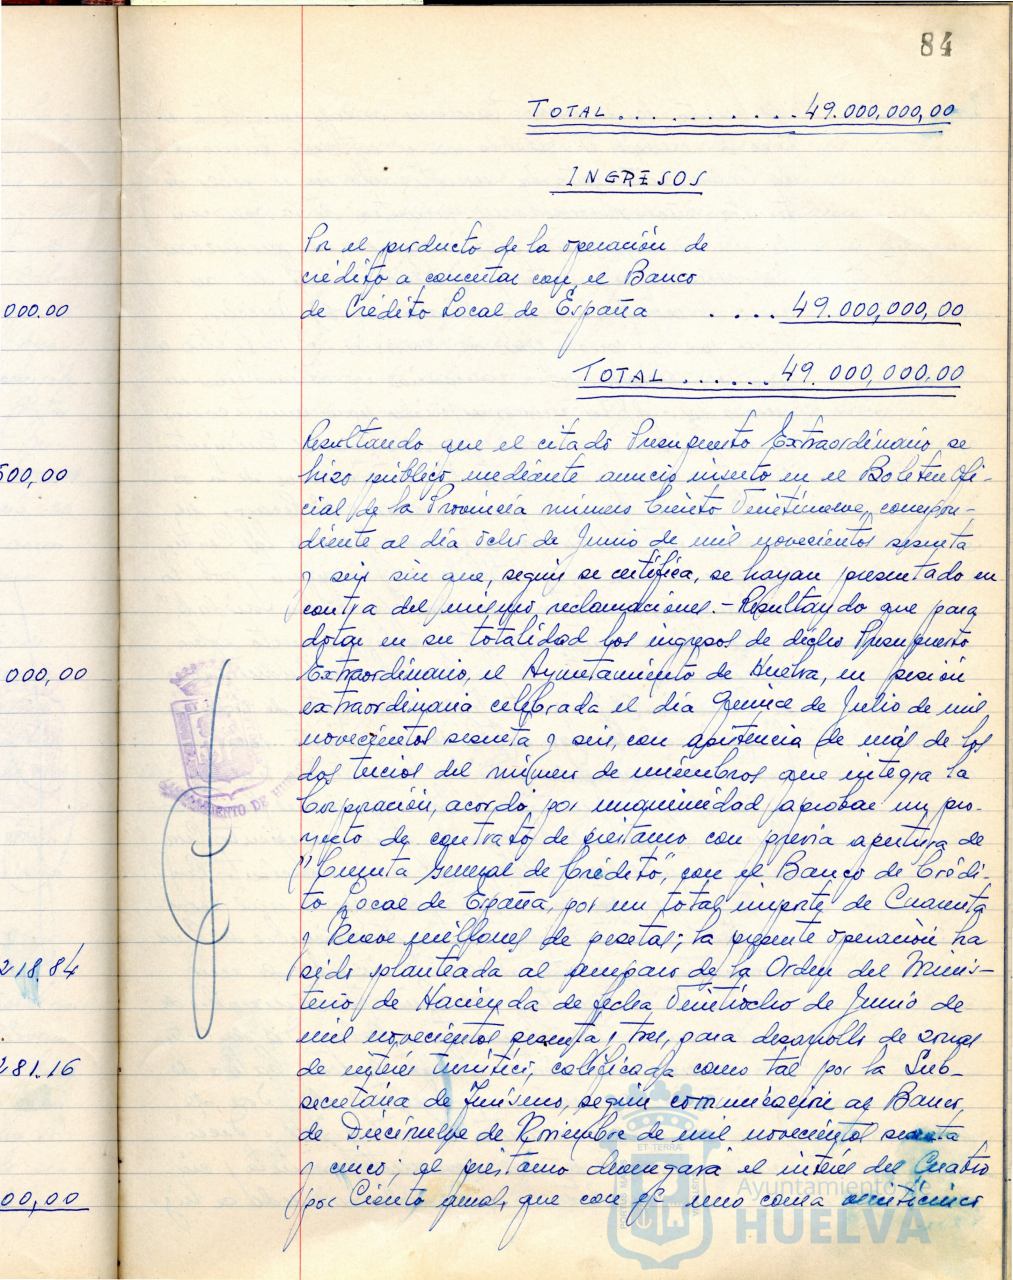 84
TOTAL . . . . . . . . . . . 49.000,000,00
INGRESOS
Por el producto de la operación de
crédito a concertar con el Banco
000.00
de Crédito Local de España . . . . 49.000,000,00
TOTAL . . . . . . 49.000,000.00
Resultando que el citado Presupuesto Extraordinario, se
500,00
hizo público mediante anuncio inserto en el Boletin Ofi-
cial de la Provincia número Ciento Veintinueve, correspon-
diente al día ocho de Junio de mil novecientos sesenta
y seis sin que, según se certifica, se hayan presentado en
contra del mismo, reclamaciones.- Resultando que para
dotar en su totalidad los ingresos de dicho Presupuesto
000,00
Extraordinario, el Ayuntamiento de Huelva, en sesión
extraordinaria celebrada el día Quince de Julio de mil
novecientos sesenta y seis, con asistencia de más de los
dos tercios del número de miembros que integra la
Corporación, acordó, por unanimidad aprobar un pro-
yecto de contrato de préstamo con previa apertura de
"Cuenta General de Crédito", con el Banco de Crédi-
to Local de España, por un total importe de Cuarenta
y Nueve millones de pesetas; la presente operación ha
218,84
sido planteada al amparo de la Orden del Minis-
terio de Hacienda de fecha Veintiocho de Junio de
mil novecientos sesenta y tres, para desarrollo de zonas
281.16
de interés turístico, calificada como tal por la Sub-
secretaria de Turismo, según comunicación al Banco,
de Diecinueve de Noviembre de mil novecientos sesenta
y cinco; el préstamo devengará el interés del Cuatro
00,00
por Ciento anual, que con el uno coma
AYUNTAMIENTO DE HUELVA
Ayuntamiento de
HUELVA